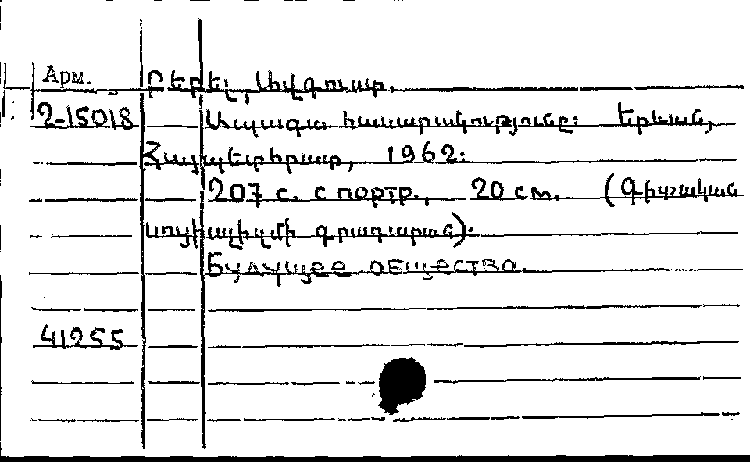 Арм. Բեբել, Ավգուստ.
2-15018 Ապագա հասարակությունը: Երևան,
Հայպետհրատ, 1962:
207 с. с портр., 20 см. (Գիտական
սոցիալիզմի գրադարան):
Будущее общество.
41255